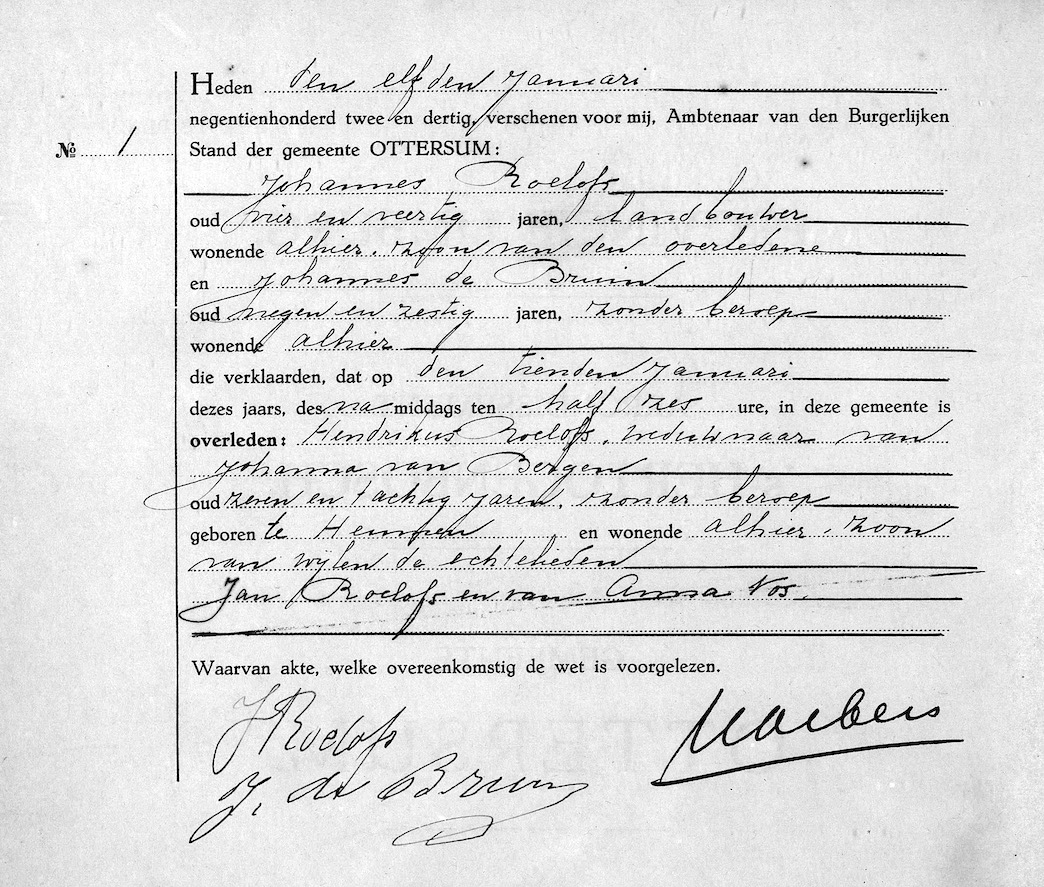 Heden den elfden Januari
negentienhonderd twee en dertig, verschenen voor mij, Ambtenaar van den Burgerlijken
No 1 Stand der gemeente OTTERSUM:
Johannes Roelofs
oud vier en veertig jaren, landbouwer
wonende alhier, zoon van den overledene
en Johannes de Bruin
oud negen en zestig jaren, zonder beroep
wonende alhier
die verklaarden, dat op den tienden Januari
dezes jaars, des namiddags ten half zes ure, in deze gemeente is
overleden: Hendrikus Roelofs, weduwnaar van
Johanna van Bergen
oud zeven en tachtig jaren, zonder beroep
geboren te en wonende alhier, zoon
van wijlen de echtelieden
Jan Roelofs en van Anna Vos.
Waarvan akte, welke overeenkomstig de wet is voorgelezen.
J Roelofs
J. de Bruin